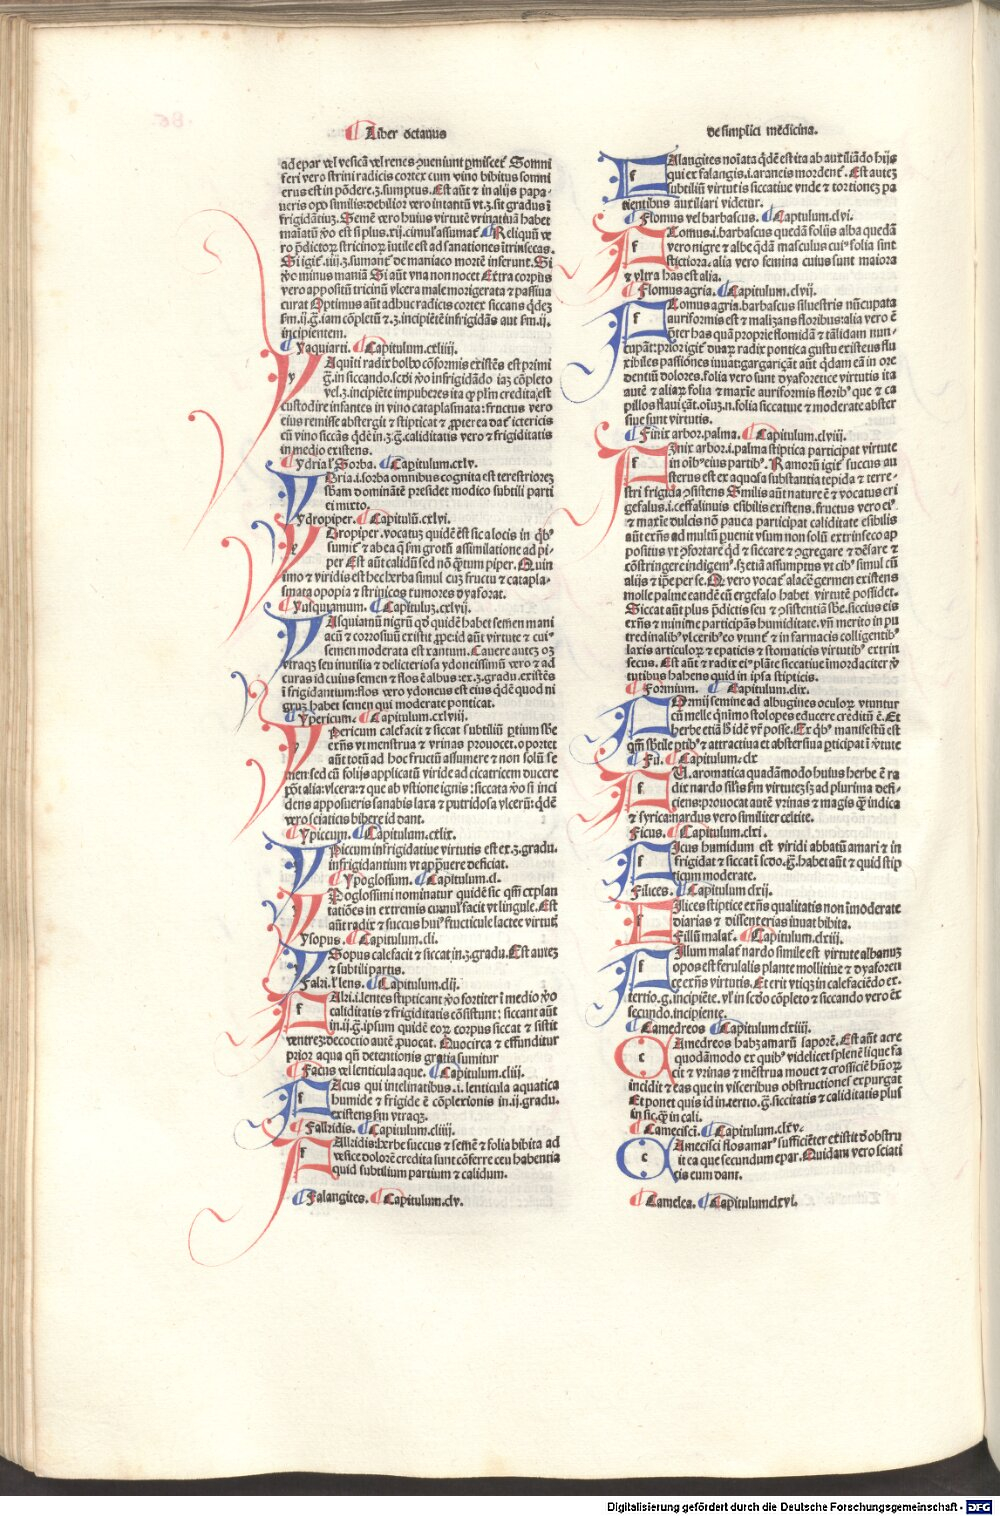 Liber octauus
de simplici medicina.
ad epar vel vesicā vel renes ꝓueniunt ꝑmiscet᷑ Somni
feri vero strini radicis cortex cum vino bibitus somni
erus est in pōdere.ʒ. sumptus. Est aūt ⁊ in alijs papa⸗
ueris opo similis: debilior vero intantū vt.ʒ. sit gradus ī
frigidātiuꝫ. Semē vero huius virtutē vrinatiuā habet
ro p̄dictoꝝ stricinoꝝ īutile est ad sanationes ītrinsecas.
Si igit᷑. iiij.ʒ. sumant᷑ de maniaco mortē inferunt. Si
ꝟo minus maniā Si aūt vna non nocet Extra corpus
vero appositū tricinū vlcera male morigerata ⁊ passiua
curat Optimus aūt adhuc radicis cortex siccans q̄dez
incipientem.
Yaquiarti. Capitulum.cxliiij.
y Aquiti radix bolbo cōformis existēs est primi
g̅. in siccando. sc̄di ꝟo in infrigidādo iaꝫ cōpleto
vel.ʒ. incipiēte impuberes ita ꝙ plm̄ credita est
custodire infantes in vino cataplasmata: fructus vero
eius remisse abstergit ⁊ stipticat ⁊ ꝓpterea dat᷑ ictericis
cū vino siccās q̄dē in.ʒ.g̅. caliditatis vero ⁊ frigiditatis
in medio existens.
Ydria l᷑ Sorba. Capitulum.cxlv.
Ydria.i. sorba omnibus cognita est terestrioreꝫ
sb̄am dominātē presidet modico subtili parti
ei mixto.
Ydropiper. Capitulū.cxlvi.
y Dropiper. vocatuꝫ quidē ē sic a locis in q̄bꝰ
sumit᷑ ⁊ ab ea ꝙ fm̄ grotū assimilatione ad pi⸗
per Est aūt calidū sed nō ꝙ̄tum piper. Quin
imo ⁊ viridis est hec herba simul cuꝫ fructu ⁊ catapla⸗
smata opopia ⁊ stripicos tumores dyaforat.
Yusquiamum. Capituluꝫ.cxlvij.
Usquiamū nigrū qd̓ quidē habet semen mani
acū ⁊ corrosiuū existit ꝓpe: id aūt virtute ⁊ cuiꝰ
semen moderata est xantum. Cauere auteꝫ oꝫ
vtraqꝫ seu inutilia ⁊ delicteriosa ydoneissimū vero ⁊ ad
curas id cuius semen ⁊ flos ē albus: ex.ʒ. gradu. existēs
ī frigidantium: flos vero ydoncus est eius q̄dē quod ni
gruꝫ habet semen qui moderate ponticat.
Ypericum. Capitulum.cxlviij.
y Pericum calefacit ⁊ siccat subtiliū ꝑtium sb̄e
exn̄s vt menstrua ⁊ vrinas prouocet. oportet
aūt totū ad hoc fructū assumere ⁊ non solū se
men sed cū folijs applicatū viride ad cicatricem ducere
pōt alia: vlcera: ⁊ que ab vstione ignis: siccata ꝟo si inci
dens apposueris sanabis laxa ⁊ putridosa vlcerū: q̄dē
vero sciaticis bibere id dant.
Ypiccum. Capitulum.cxlix.
Ypiccum infrigidatiue virtutis est ex.ʒ. gradu.
infrigidantium vt appꝛuere deficiat.
Ypoglossum. Capitulum.cl.
Ypoglossimi nominatur quidē sic qm̄ explan
tatiōes in extremis cumul' facit vt lingule. Est
aūt radix ⁊ succus huiꝰ fructicule lactee virtut᷑.
Ysopus. Capitulum.cli.
Ysopus calefacit ⁊ siccat in.ʒ. gradu. Est auteꝫ
⁊ subtili partis.
Falxi. l᷑ lens. Capitulum.clij.
f Alxi.i. lentes stipticant ꝟo fortiter ī medio ꝟo
caliditatis ⁊ frigiditatis cōsistunt: siccant aūt
in.ij.g̅. ipsum quidē eoꝝ corpus siccat ⁊ sistit
ventrez: decoctio autē ꝓuocat. Quocirca ⁊ effunditur
prior aqua qn̄ detentionis gratia sumitur
Facus vel lenticula aque. Capitulum.cliij.
f Acus qui intelinatibus.i. lenticula aquatica
humide ⁊ frigide ē cōplexionis in.ij. gradu.
existens fm̄ vtraqꝫ.
Fallxidis. Capitulum.cliiij.
f Allxidis: herbe succus ⁊ semē ⁊ folia bibita ad
vesice dolorē credita sunt cōferre ceu habentia
quid subtilium partium ⁊ calidum.
Falangites. Capitulum.clv.
f Alangites noīata q̄dē est ita ab auxiliādo hijs
qui ex falangis.i. araneis mordent᷑. Est auteꝫ
subtiliū virtutis siccatiue vnde ⁊ tortionez pa
tientibus auxiliari videtur.
Flomus vel barbascus. Captulum.clvi.
f Lomus.i. barbascus quedā folijs alba quedā
vero nigre ⁊ albe q̄dā masculus cuiꝰ folia sint
strictiora. alia vero femina cuius sunt maiora
⁊ vltra has est alia.
Flomus agria. Capitulum.clvij.
f Lomus agria. barbascus siluestris nūcupata
auriformis est ⁊ malizans floribus: alia vero ē
cupāt: prior igit᷑ duaꝝ radix pontica gustu existeus flu
xibiles passiones iuuat: gargariçāt aūt q̄dam eā in ore
dentiū dolores. folia vero sunt dyaforetice virtutis ita
autē ⁊ aliaꝝ folia ⁊ maxīe auriformis floribꝰ que ⁊ ca
siue sunt virtutis.
Finix arbor. palma. Capitulum.clviij.
f Inix arbor.i. palma stiptica participat virtute
in oībꝰ eius partibꝰ. Ramorū igit᷑ succus au
sterus est ex aquosa substantia tepida ⁊ terre⸗
stri frigida ꝯsistens Smilis aūt nature ē ⁊ vocatus eri
gefalus.i. ceffalinuis esibilis existens. fructus vero eiꝰ
⁊ maxīe dulcis nō pauca participat caliditate esibilis
aūt exn̄s ad multū ꝓuenit vsum non solū extrinseco ap
positus vt ꝯfortare qd̓ ⁊ siccare ⁊ ꝯgregare ⁊ dēsare ⁊
cōstringere indigemꝰ. sꝫ etiā assumptus vt cibꝰ simul cū
alijs ⁊ ip̄e per se. Qr vero vocat᷑ alacē germen existens
molle palme eandē cū ergefalo habet virtutē possidet.
Siccat aūt plus p̄dictis seu ⁊ ꝯsistentia sb̄e. siccius eis
exn̄s ⁊ minime participās humiditate. vn̄ merito in pu
tredinalibꝰ vlceribꝰ eo vtunt᷑ ⁊ in farmacis colligentibꝰ
laxis articuloꝝ ⁊ epaticis ⁊ stomaticis virtutibꝰ extrin
secus. Est aūt ⁊ radix eiꝰ plāte siccatiue īmordaciter ꝟ
tutibus habens quid in ipsa stipticis.
Formium. Capitulum.clix.
f Ormij semine ad albugines oculoꝝ vtuntur
cū melle q̄nimo stolopes educere creditū ē. Et
herbe etiā sb̄ idē vr̄ posse. Ex q̄bꝰ manifestū est
qm̄ sb̄tile ptibꝰ ⁊ attractiua et abstersiua ꝑticipat ī ꝟtute
Fu. Capitulum.clx
f U. aromatica quadāmodo huius herbe ē ra
dix nardo sil'is fm̄ virtuteꝫ sꝫ ad plurima defi⸗
ciens: prouocat autē vrinas ⁊ magis ꝙ̄ indica
⁊ syrica: nardus vero similiter celtite.
Ficus. Capitulum.clxi.
f Icus humidum est viridi abbatū amari ⁊ in
frigidat ⁊ siccat ī sc̄do.g̅. habet aūt ⁊ quid stip
ticum moderate.
Filices. Capitulum clxij.
f Ilices stiptice exn̄s qualitatis non īmoderate
diarias ⁊ dissenterias iuuat bibita.
Fillū malat᷑. Capitulum.clxiij.
f Illum malat᷑ nardo simile est virtute albanuꝫ
opos est ferulalis plante mollitiue ⁊ dyaforeti
ce exn̄s virtutis. Et erit vtiqꝫ in calefaciēdo ex.
tertio.g. incipiēte. vl' in sc̄do cōpleto ⁊ siccando vero ex
secundo. incipiente.
Camedreos Capitulum clxiiij.
c Amedreos habꝫ amarū saporē. Est aūt acre
quodāmodo ex quibꝰ videlicet splenē lique fa
cit ⁊ vrinas ⁊ mēstrua mouet ⁊ crossiciē hūoꝝ
incidit ⁊ eas que in visceribus obstructiones expurgat
Et ponet quis id in. tertio.g̅. siccitatis ⁊ caliditatis plus
in sic. ꝙ̄ in cali.
Camecisci. Capitulum.clxv.
c Amecisci flos amarꝰ sufficiēter existit ꝟo obstru
it ea que secundum epar. Quidam vero sciati
cis eum dant.
Camelea. Capitulum clxvi.
Digitalisierung gefördert durch die Deutsche Forschungsgemeinschaft - DFG